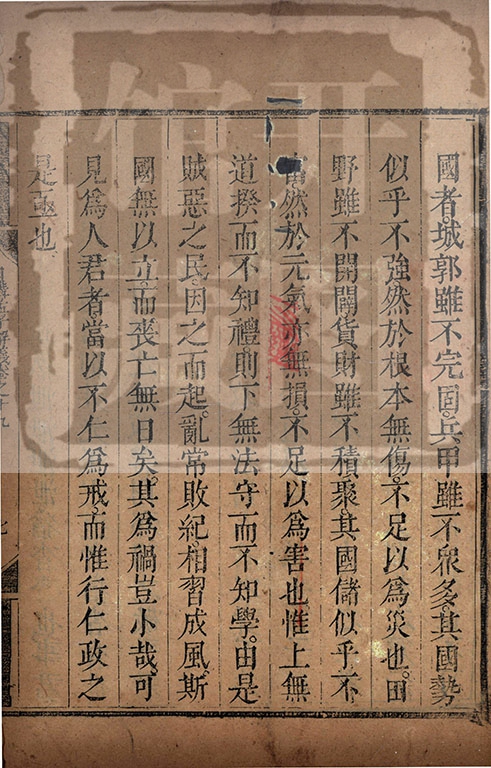 國者。城郭雖不完固。兵甲雖不衆多。其國勢
似乎不強。然於根本無傷。不足以爲災也。田
野雖不開闢。貨財雖不積聚。其國儲似乎不
富。然於元氣亦無損。不足以爲害也。惟上無
道揆而不知禮。則下無法守而不知學。由是
賊惡之民。因之而起。亂常敗紀。相習成風。斯
國無以立。而喪亡無日矣。其爲禍豈小哉。可
見爲人君者當以不仁爲戒。而惟行仁政之
是亟也